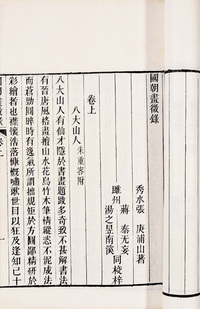 國朝畫徵錄
秀水張 庚浦山著
蔣 泰无妄
睢州
湯之昱南溪
同校梓
卷上
八大山人 朱重容附
八大山人有仙才隱於書畫題跋多奇致不甚解書法
有晉唐風格畫擅山水花鳥竹木筆情縱恣不泥成法
而蒼勁圓晬時有逸氣所謂拙規矩於方圓鄙精研於
彩繪者也襟懷浩落慷慨嘯歌世目以狂及逢知己十